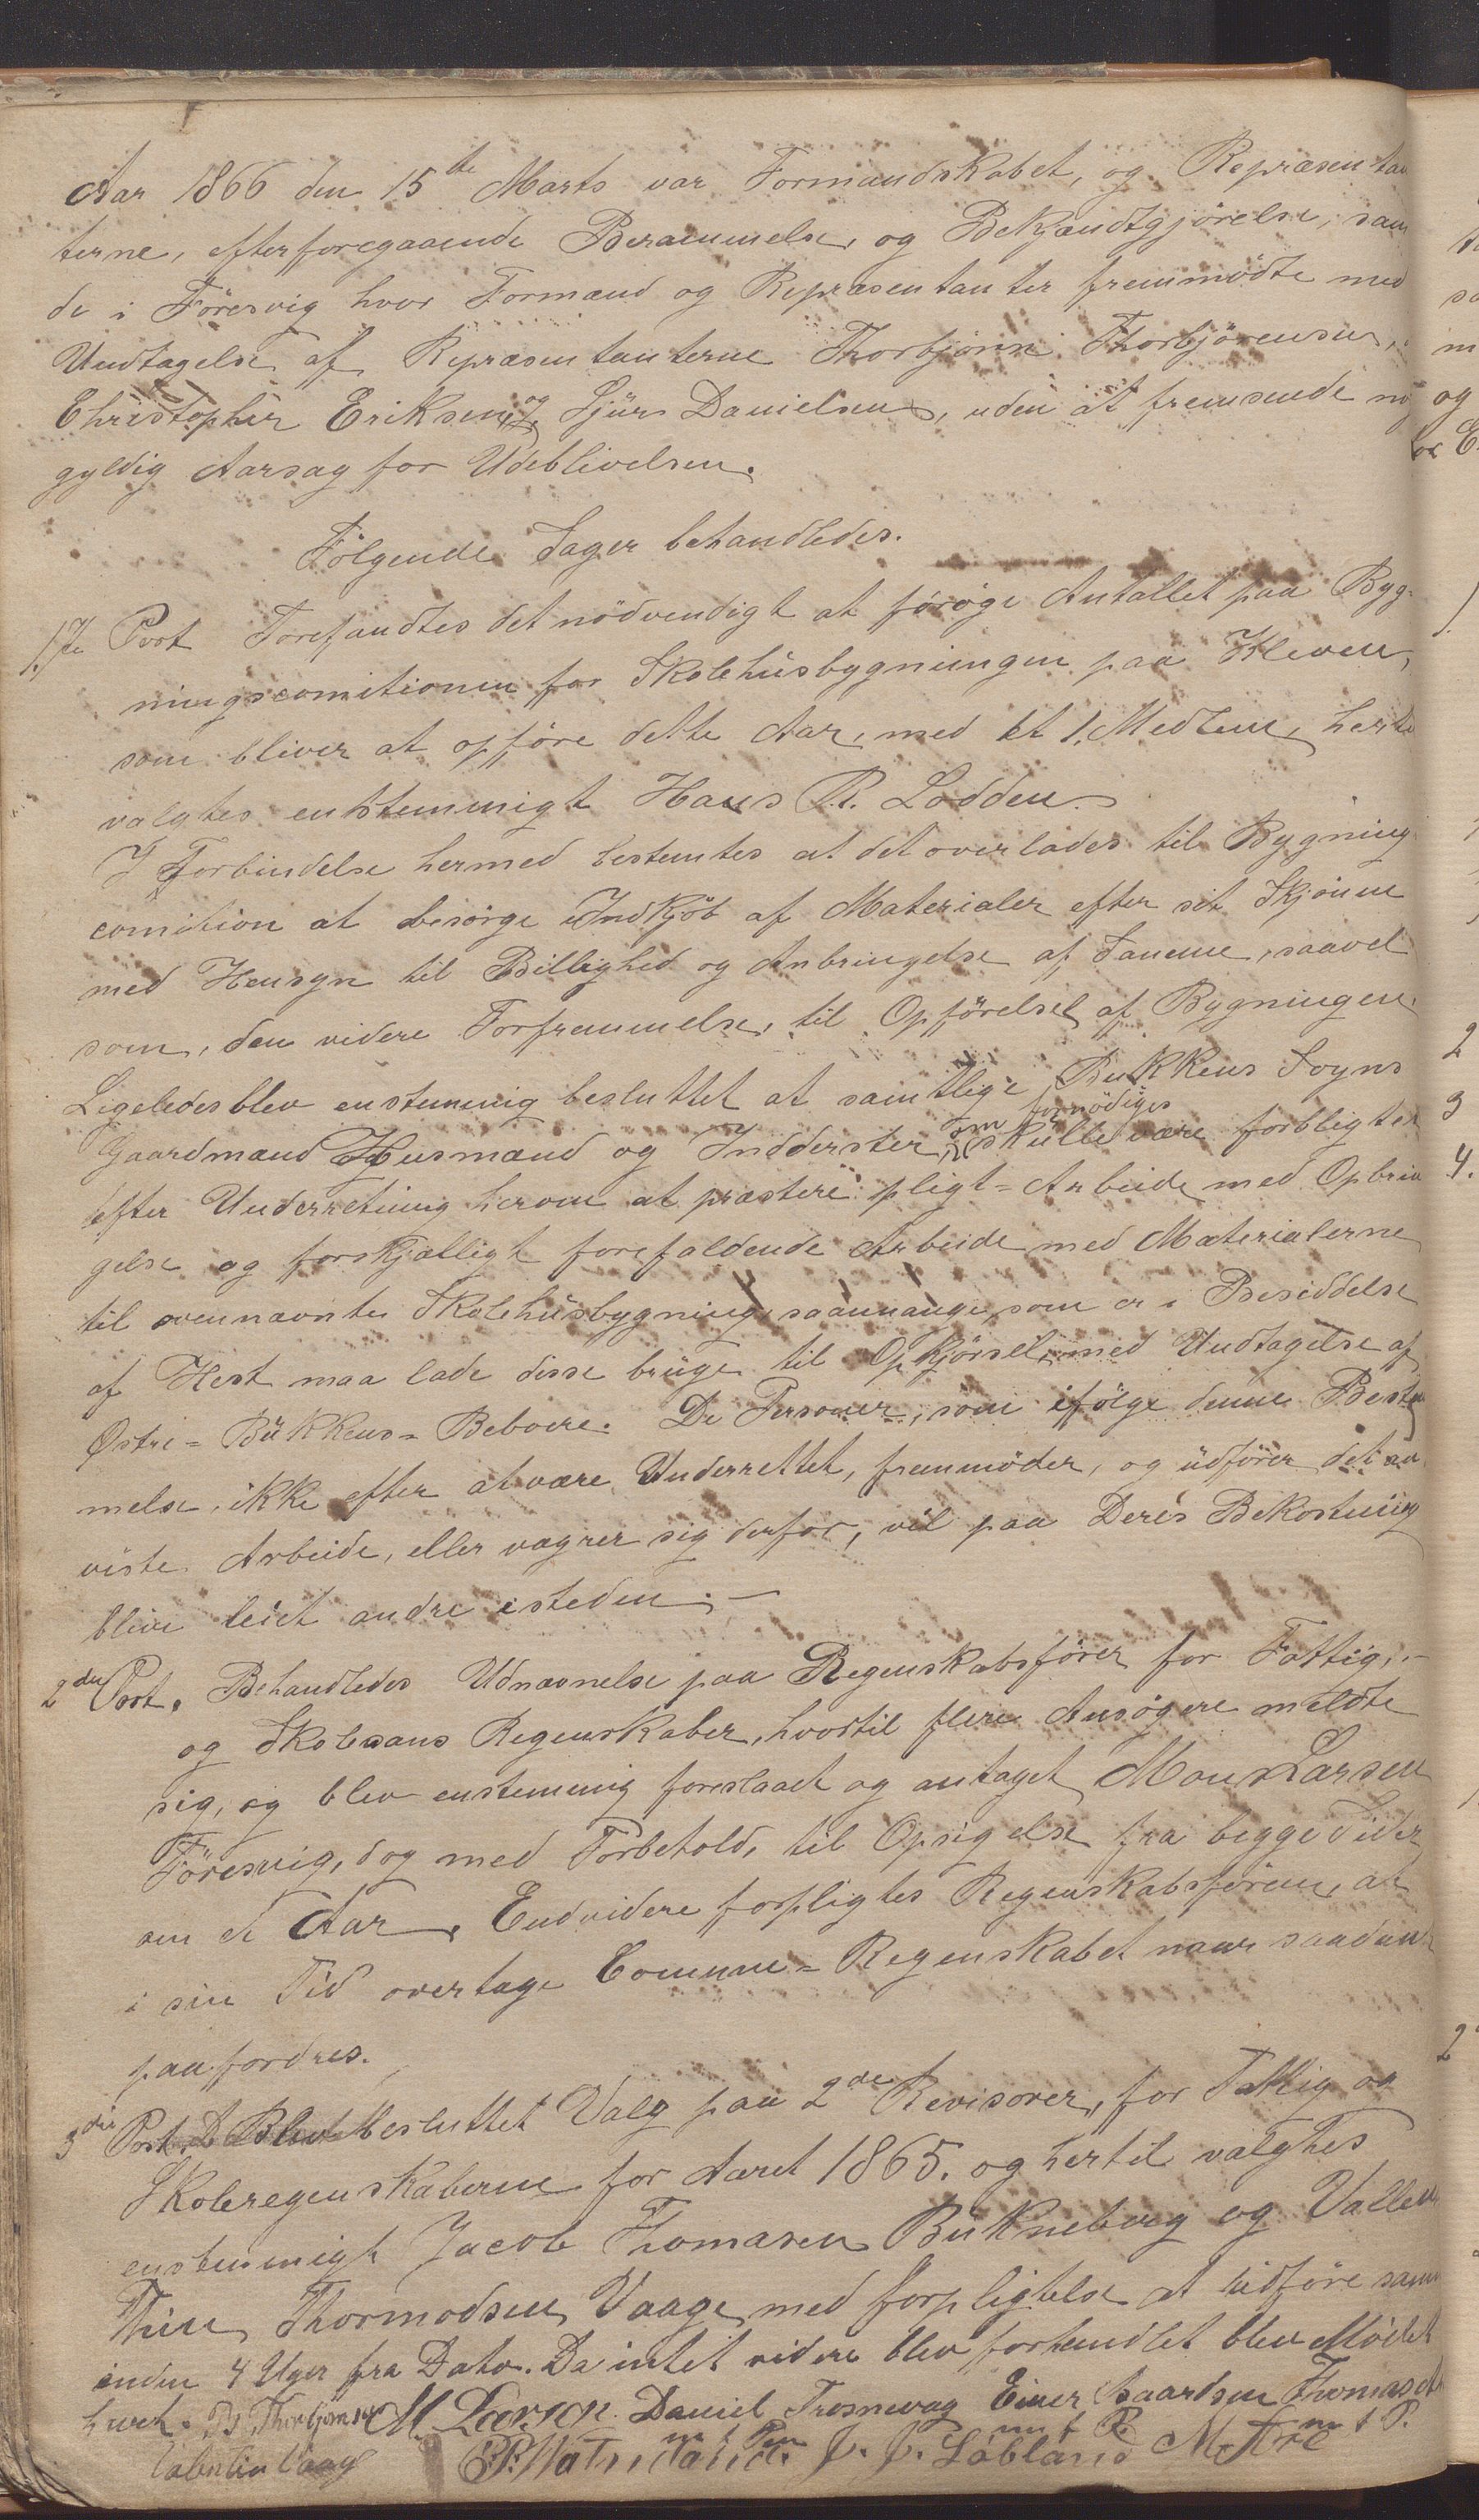 Aar 1866 den 15te Marts var Formandskabet, og Repræsentan
terne, efter foregaaende Berammelse, og Bekjændtgjörelse, sam
de i Föresvig hvor Formænd og Repræsentanter fremmödte med
Undtagelse af Repræsentanterne Thorbjörnn Thorbjörensen,
Christopher Eriksen, og Sjür Danielsen, uden at fremsende no
gyldig Aarsag for Udeblivelsen.
Fölgende Sager behandledes.
1ste Post Forefandtes det nödvendigt at foröge Antallet paa Byg-
ningscomitionen for Skolehüsbygningen paa Kleven,
som bliver at opföre dette Aar, med et 1. Medlem, hertil
valgtes enstemmigt Hans R. Lodden.
I Forbindelse hermed bestemtes at det overlades til Bygning
comition at besörge Indkjöb af Materialer efter sit Skjönne
med Hensyn til Billighed og Anbringelse af Samme, saavel
som, den videre Forfremmelse, til Opförelsel af Bygningen.
Ligeledes blev enstemmig besluttet at samtlige Bukkens Sogns
Gaardmænd Husmænd og Indderster, om fornödiges skulle være forbligtet
efter Underretning herom at præstere pligt-Arbeide med Opbrin
gelse og forskjælligt forefaldende Arbeide med Materialerne
til ovennævnte Skolehüsbygning, saamange, som er i Besiddelse
af Hest maa lade disse brüge til Opkjörsel, med Undtagelse af
Østre-Bükkens-Beboere. De Personer, som ifölge denne Bestem
melse, ikke efter at være Underrettet, fremmöder, og üdförer det an
viste Arbeide, eller vægrer sig derfor, vil paa Deres Bekostning
blive leiet andre isteden.—
2den Post. Behandledes Udnævnelse paa Regenskabsförer for Fattig,-
og Skolevæns Regenskaber, hvortil flere Ansögere meldte
sig, og blev enstemmig foreslaaet og antaget Mons Larsen
Föresvig, dog med Forbehold, til Opsigelse fra begge Sider
om et Aar. Endvidere forpligtes Regenskabsföreren, at
i sin Tid overtage Commune-Regenskabet naar saadant
paafordres.
3die Post. Blev besluttet Valg paa 2de Revisorer, for Fattig og
Skoleregenskaberne for Aaret 1865. og hertil valgtes
enstemmigt Jacob Thomasen Bukneberg og Vallen
Thin Thormodsen Vaage, med forpligtelse at üdföre samme
inden 4 Uger fra Dato. Da intet videre blev forhandlet blev Mödet
hævet. M. Larsen Daniel Trosnevag Einer Baardsen Thomas
Valentin Vaag J. J. Löbland